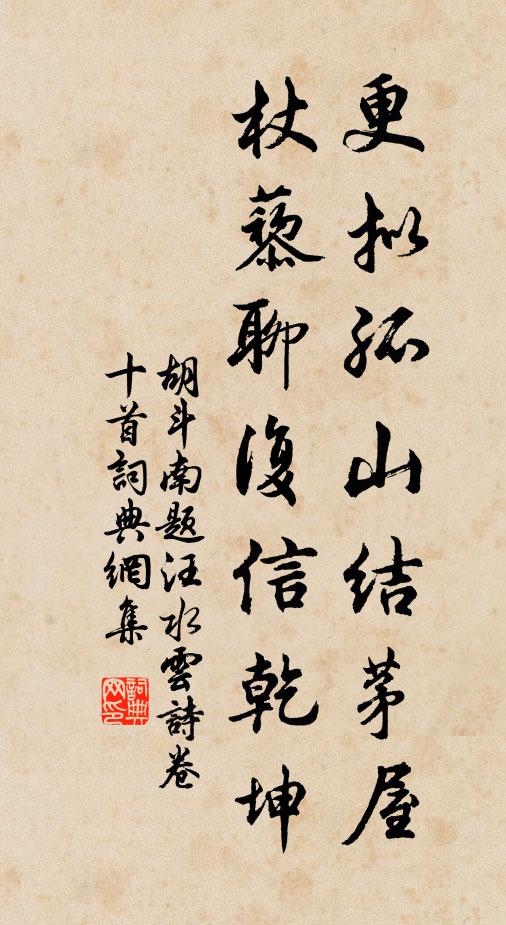 更拟孤山结茅屋
杖藜聊復信乾坤
胡斗南题汪水雲詩卷
十首詞典網集
詞典
网印